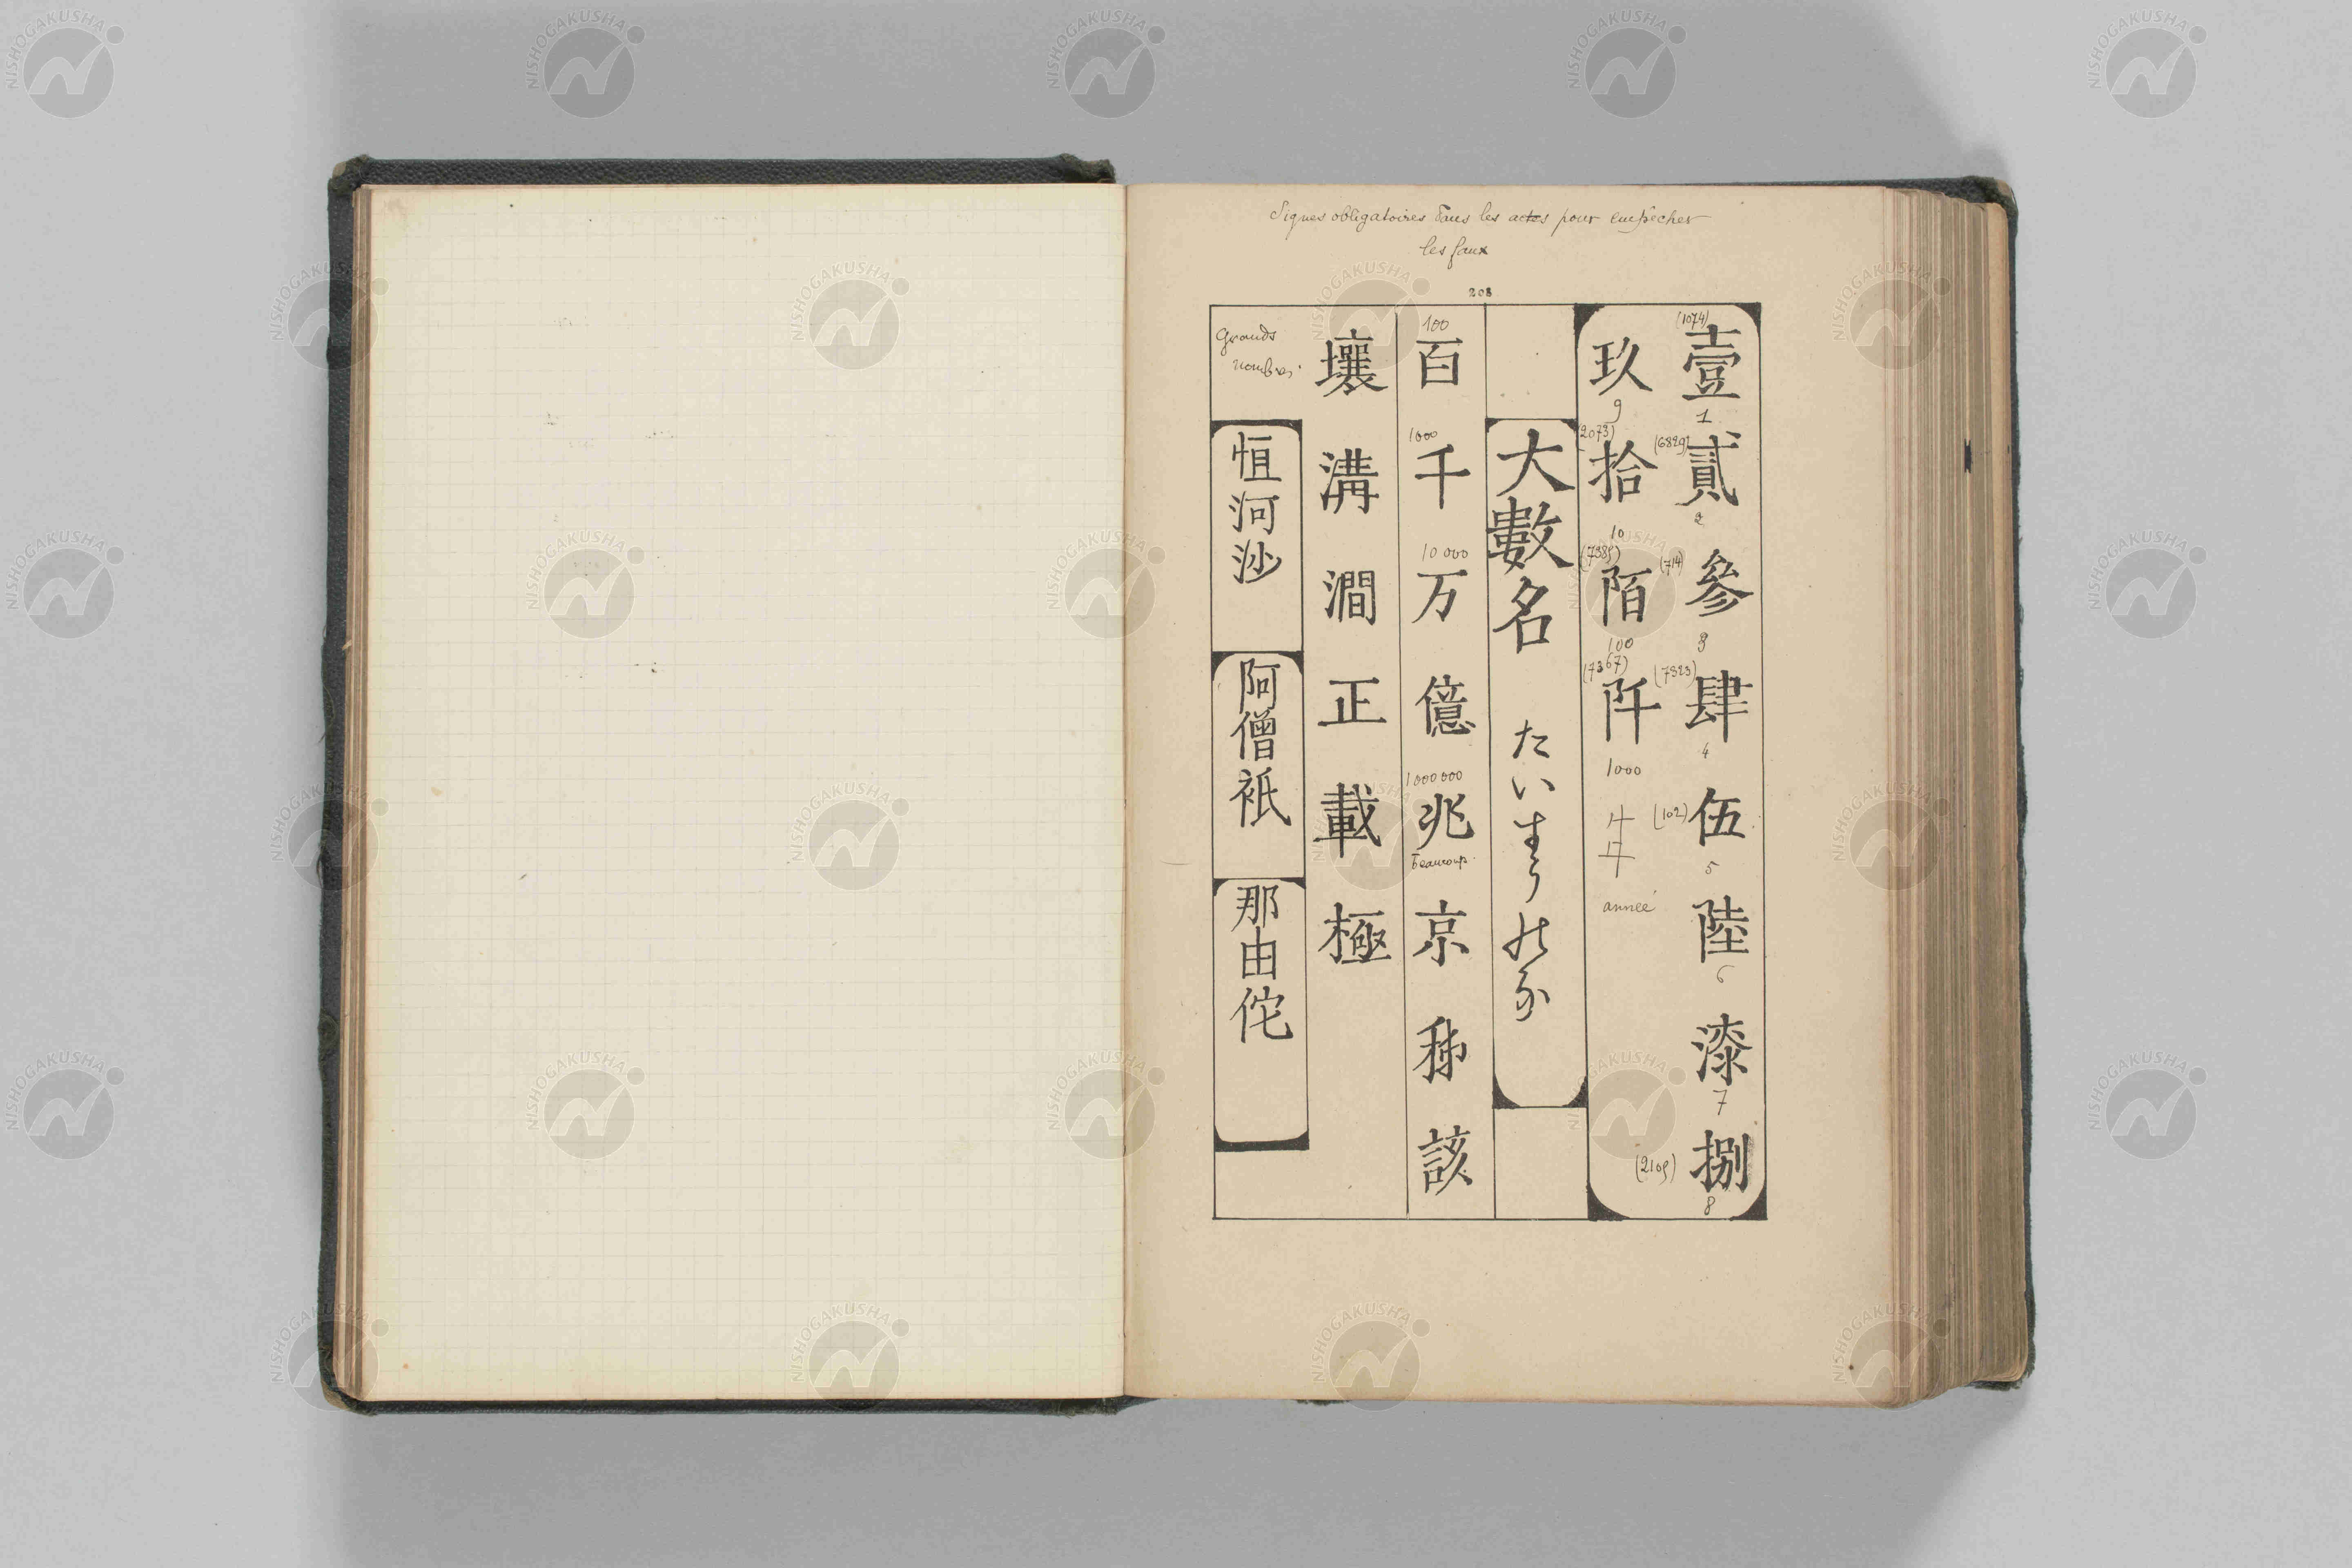 Signes obligatoires dans les actes pour empêcher
les faux
208
(1074)
壹
1
(6829)
貳
2
(714)
參
3
(7823)
肆
4
(102)
伍
5
陸
6
漆
7
(2109)
捌
8
玖
9
(2073)
拾
10
(7389)
陌
100
(7367)
阡
1000
年
année
大數名 たいすうのな
100
百
1000
千
10000
万
億
1000000
兆
beaucoup
京
秭
該
壤
溝
澗
正
載
極
Grands
nombres
恒河沙
阿僧祇
那由佗
NISHOGAKUSHA